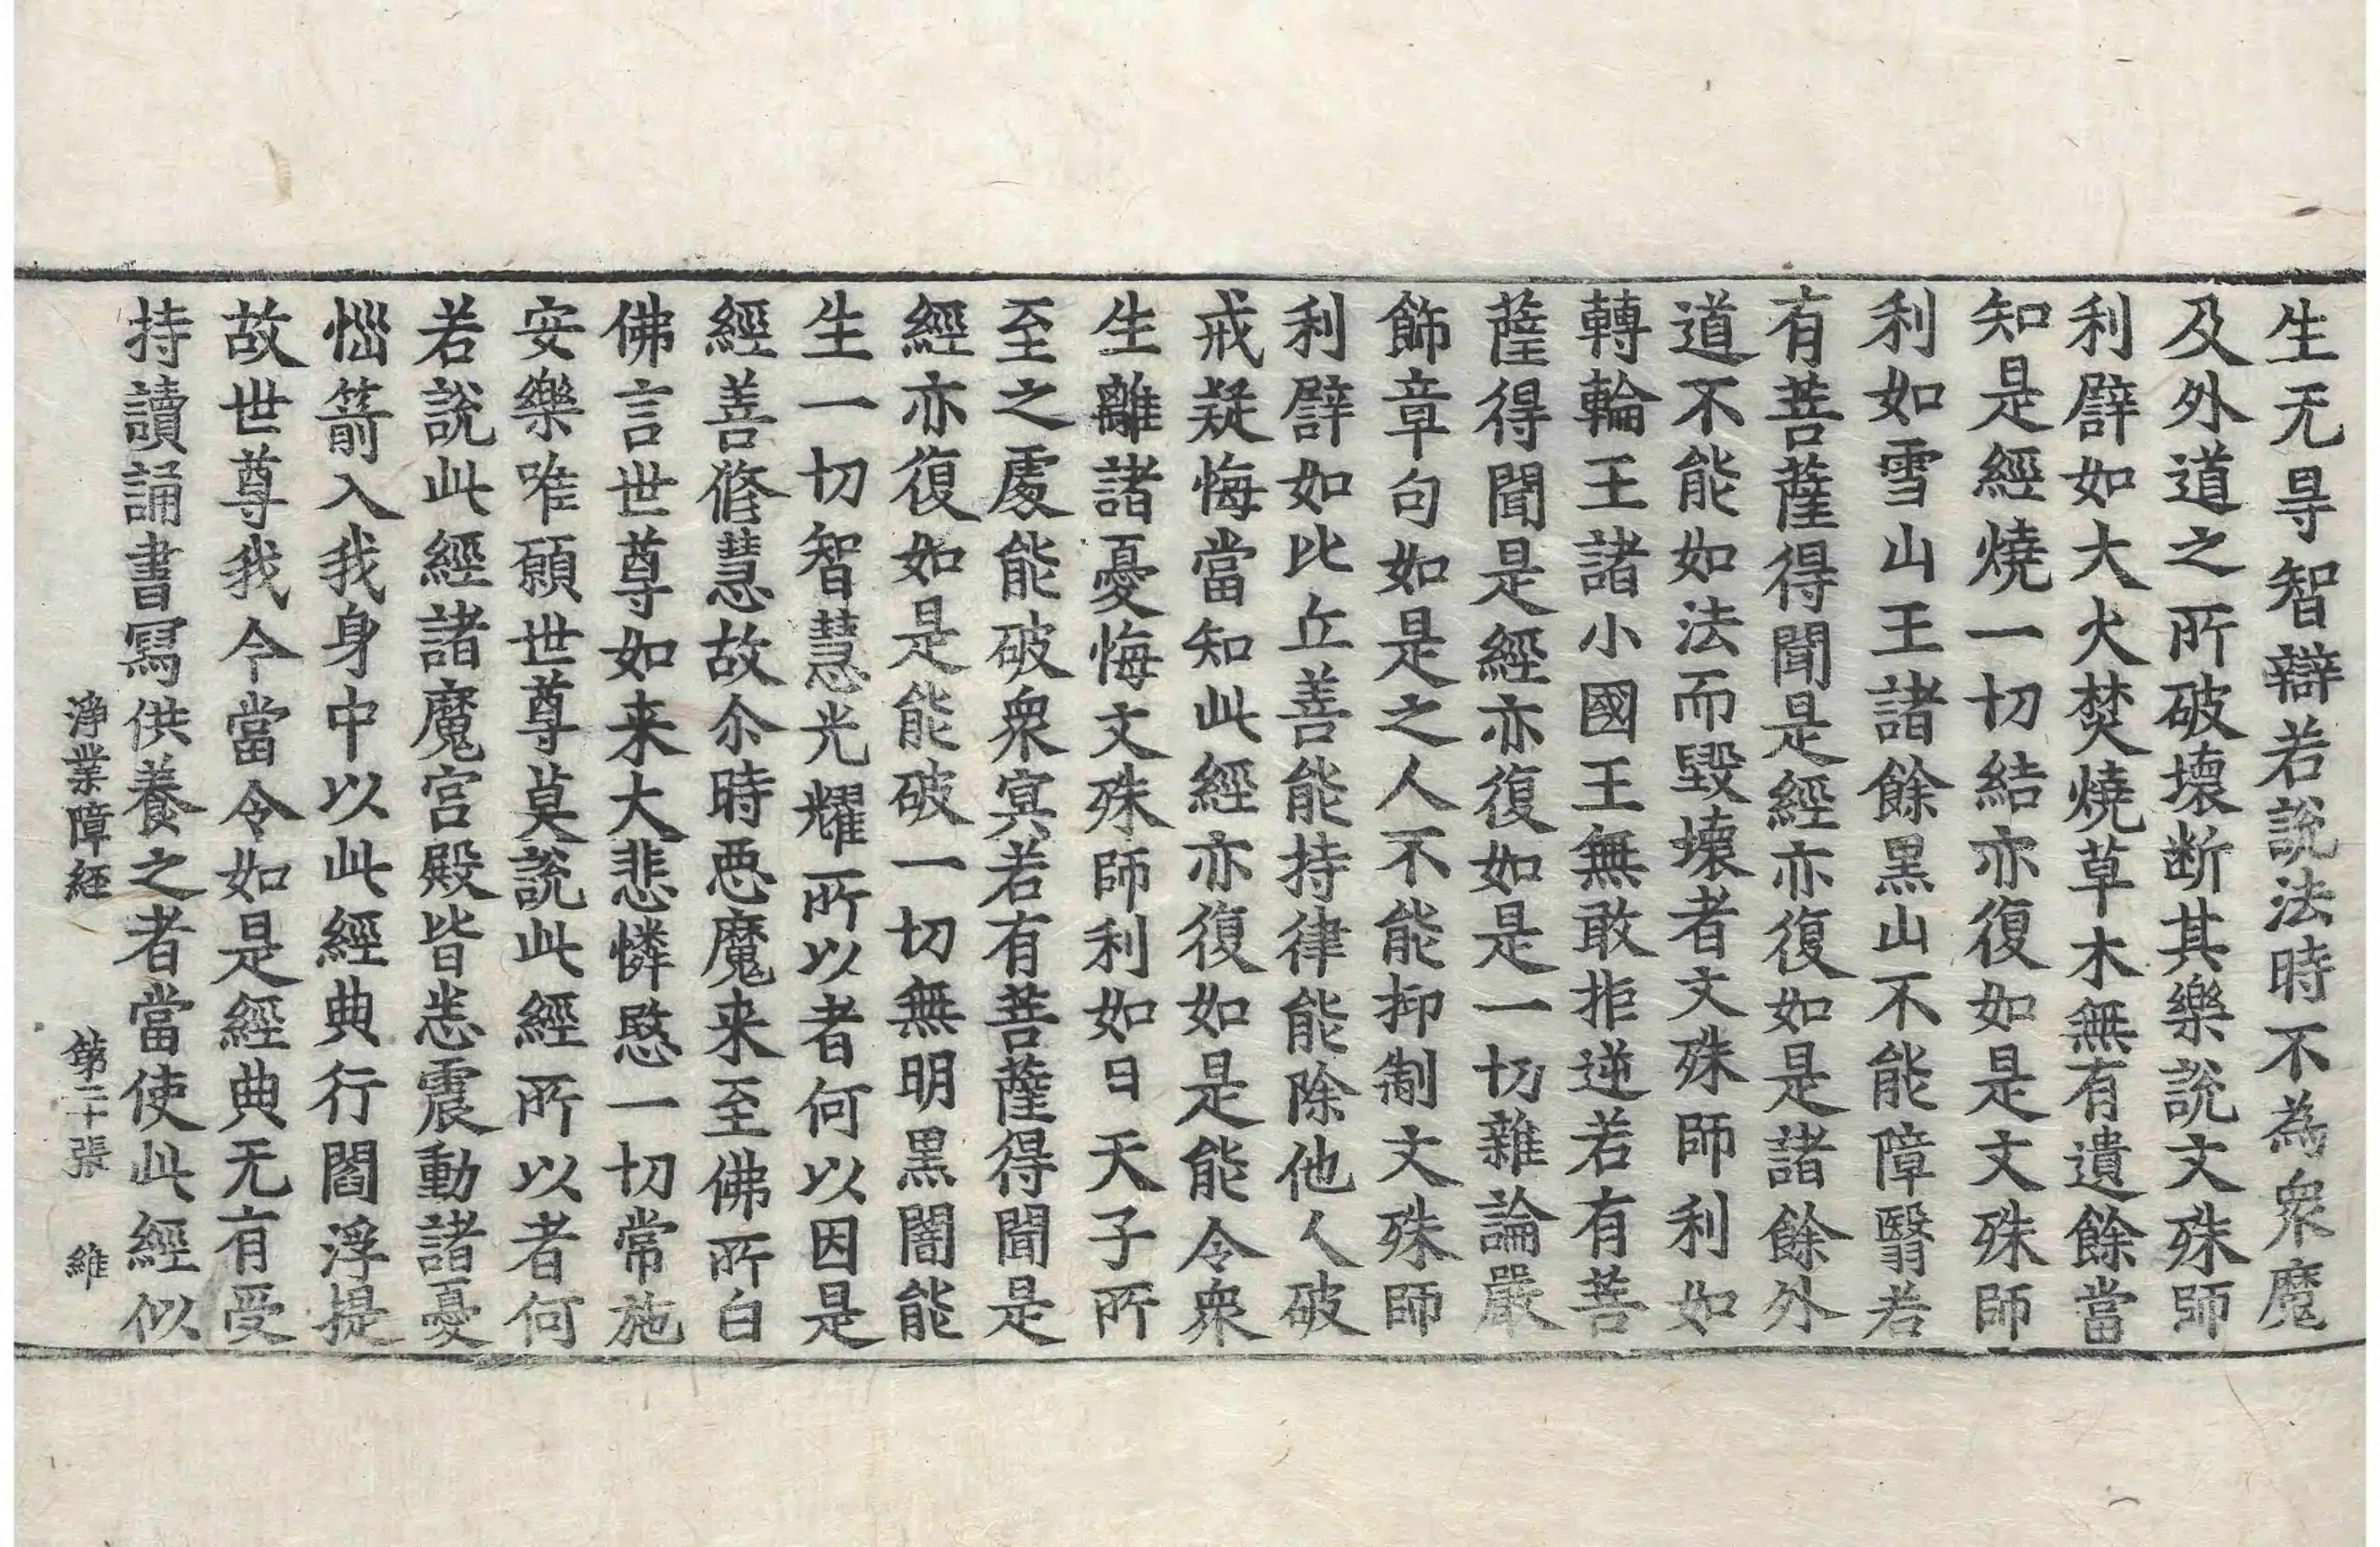 生无㝵智辯若說法時不為衆魔
及外道之所破壞断其樂說文殊師
利譬如大火焚燒草木無有遺餘當
知是經燒一切結亦復如是文殊師
利如雪山王諸餘黒山不能障翳若
有菩薩得聞是經亦復如是諸餘外
道不能如法而毀壞者文殊師利如
轉輪王諸小國王無敢拒逆若有菩
薩得聞是經亦復如是一切雜論嚴
飾章句如是之人不能抑制文殊師
利譬如比丘善能持律能除他人破
戒疑悔當知此經亦復如是能令衆
生離諸憂悔文殊師利如日天子所
至之處能破衆㝠若有菩薩得聞是
經亦復如是能破一切無明黒闇能
生一切智慧光耀所以者何以因是
經善修慧故尒時惡魔来至佛所白
佛言世尊如来大悲憐愍一切常施
安樂唯願世尊莫說此經所以者何
若說此經諸魔宮殿皆悉震動諸憂
惱箭入我身中以此經典行閻浮提
故世尊我今當令如是經典无有受
持讀誦書寫供養之者當使此經似
淨業障經 第二十張 維